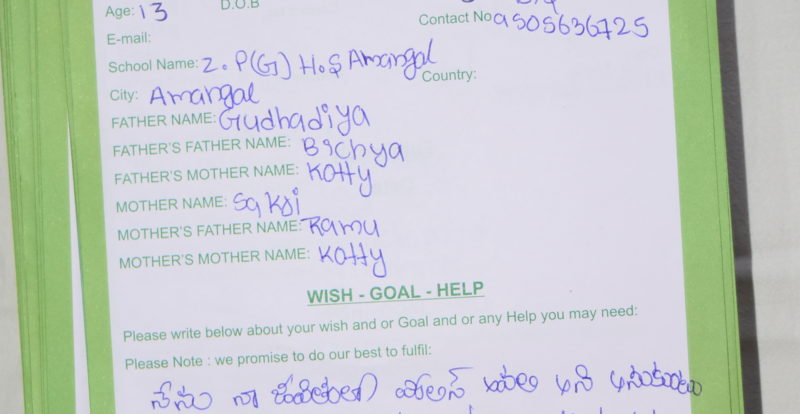 Age: 13 D.O.B
Contact No 9505636725
E-mail:
School Name: Z. P(G) H.S Amangal
Country:
City: Amangal
FATHER NAME: Gudhadiya
FATHER'S FATHER NAME: Bichya
FATHER'S MOTHER NAME: Kotty
MOTHER NAME: Sakri
MOTHER'S FATHER NAME: Ramu
MOTHER'S MOTHER NAME: Kotty
WISH - GOAL - HELP
Please write below about your wish and or Goal and or any Help you may need:
Please Note : we promise to do our best to fulfil:
నేను నా జీవితంలో పోలీస్ కావాలి అని అనుకుంటు